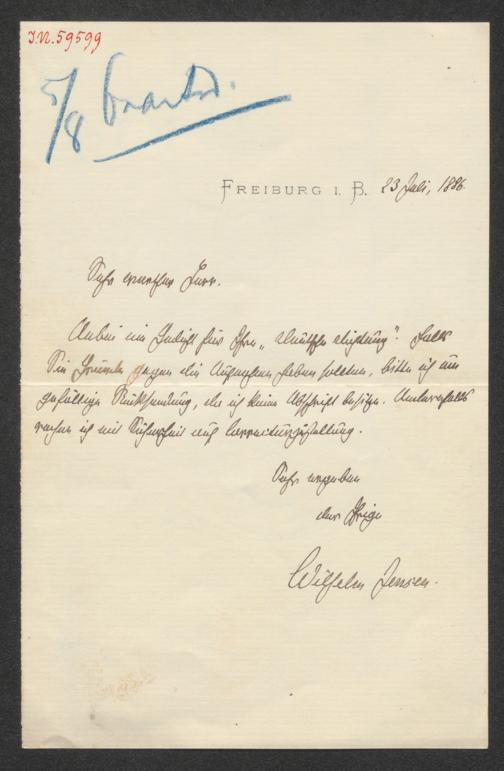 I.N. 59599
5/8
FREIBURG I. B. 23 Juli, 1886.
Sehr werther Herr.
Anbei ein Gedicht für Ihre „Deutsche Dichtung“. Falls
Sie Gründe gegen die Aufnahme haben sollten, bitte ich um
gefällige Rücksendung, da ich keine Abschrift besitze. Andernfalls
rechne ich mit Sicherheit auf Correcturzustellung.
Sehr ergeben
der Ihrige
Wilhelm Jensen.